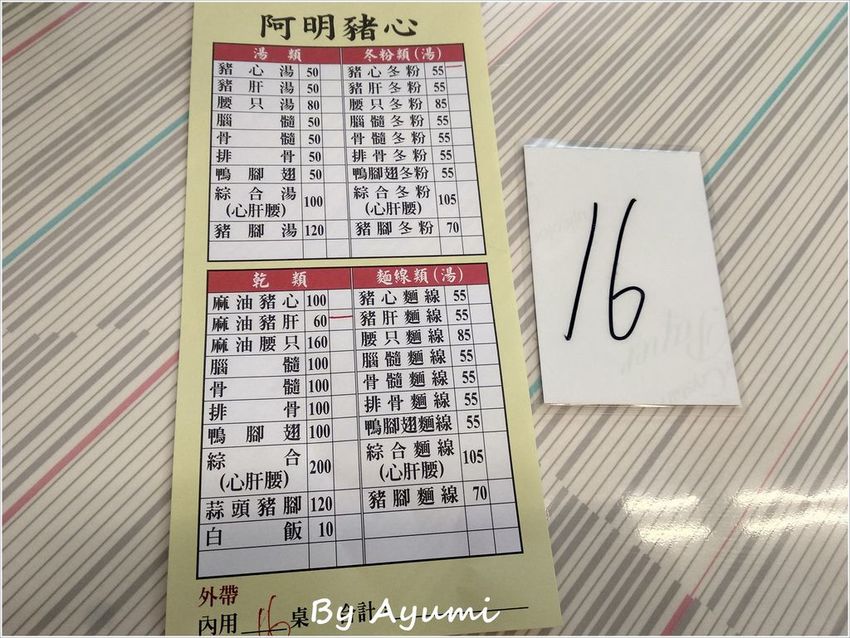 阿明豬心
湯類 冬粉類(湯)
豬心湯 50 豬心冬粉 55
豬肝湯 50 豬肝冬粉 55
腰只湯 80 腰只冬粉 85
腦髓 50 腦髓冬粉 55
骨髓 50 骨髓冬粉 55
排骨 50 排骨冬粉 55
鴨腳翅 50 鴨腳翅冬粉 55
綜合湯 100 綜合冬粉 105
(心肝腰) (心肝腰)
豬腳湯 120 豬腳冬粉 70
乾類 麵線類(湯)
麻油豬心 100 豬心麵線 55
麻油豬肝 60 豬肝麵線 55
麻油腰只 160 腰只麵線 85
腦髓 100 腦髓麵線 55
骨髓 100 骨髓麵線 55
排骨 100 排骨麵線 55
鴨腳翅 100 鴨腳翅麵線 55
綜合 200 綜合麵線 105
(心肝腰) (心肝腰)
蒜頭豬腳 120 豬腳麵線 70
白飯 10
外帶
內用 16 桌 合計
By Ayumi
16